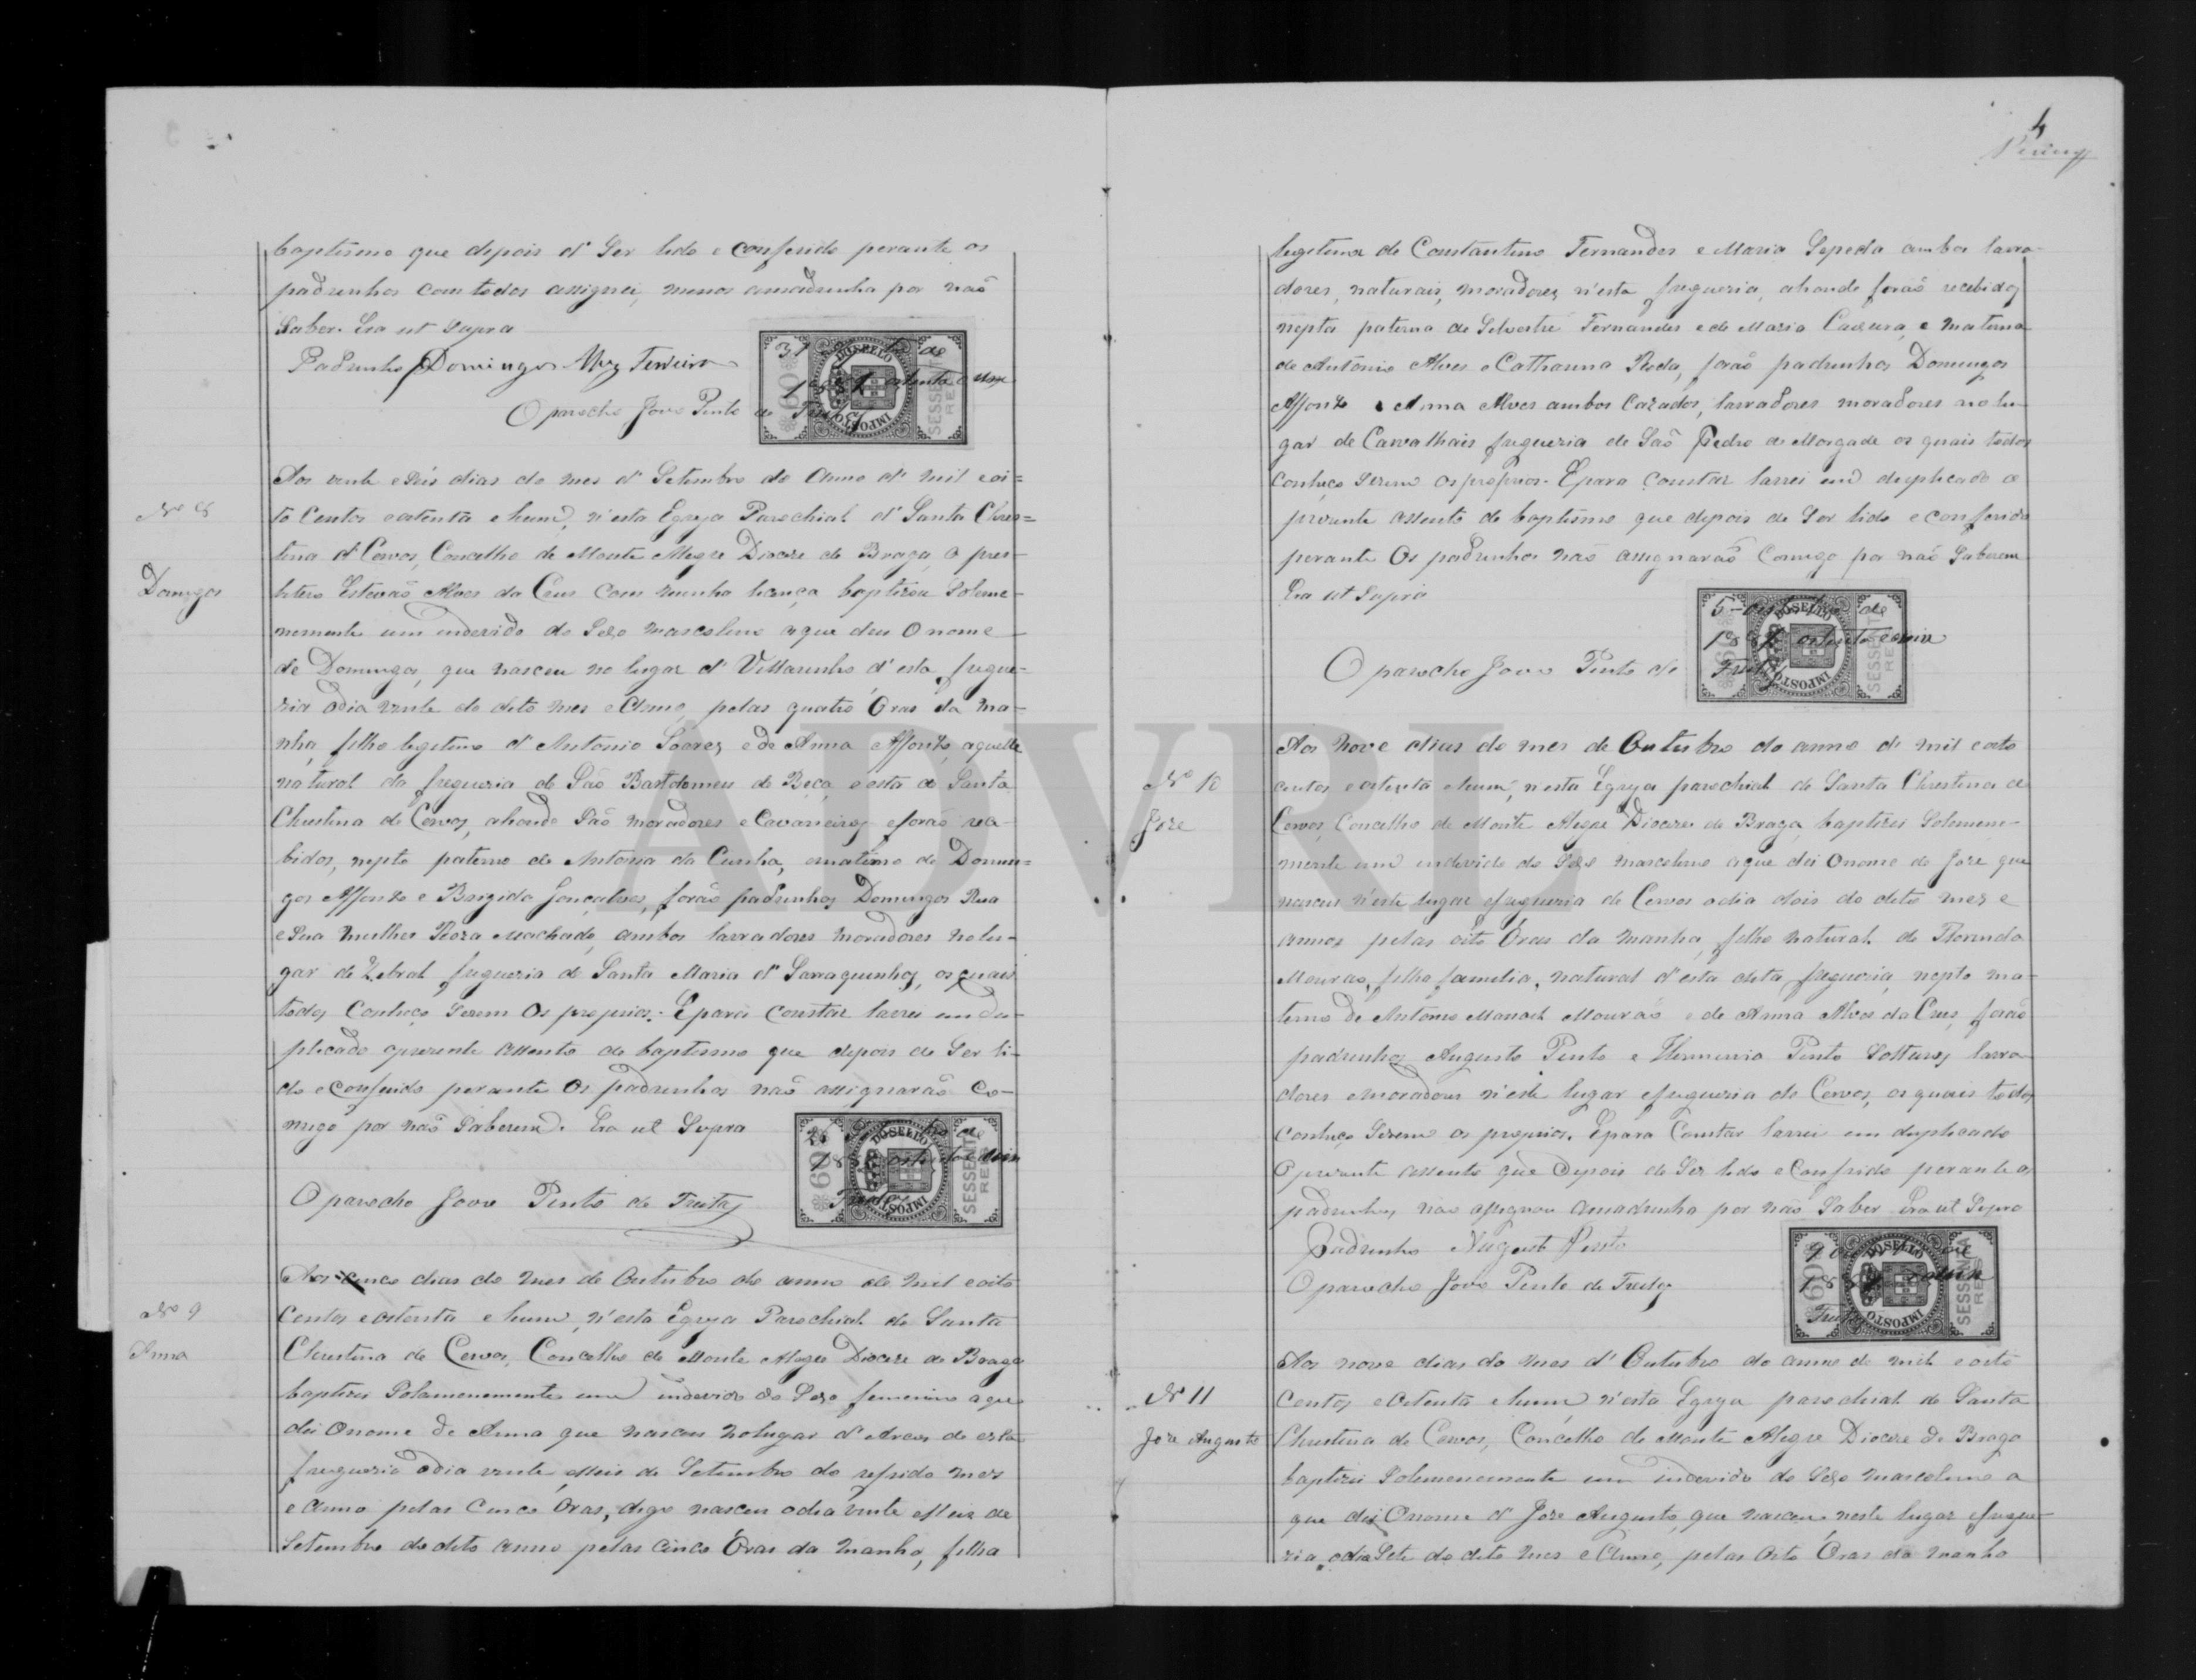 baptismo que depois d' Ser lido e conferido perante os
padrinhos com todos assignei, menos amadrinha por naõ
Saber. Era ut Supra
Padrinho Domingos Alvz Ferreira
O parocho Jove Pinto de Freitas
31 de
1881 oitenta e um
DO SELLO
IMPOSTO
60
SESSENTA
REIS
Nº 8
Domingos
Aos vinte e seis dias do mes d' Setembro do Anno d' mil e oi=
to Centos e oitenta e hum, n'esta Egreja Parochial d' Santa Chris=
tina d' Cervos, Concelho de Monte Alegre Diocese de Braga, o pres-
bitero Estevaõ Alves da Crus com minha licença baptisou Solem-
nemente um individo do Sexo masculino aque deu O nome
de Domingos, que nasceu no lugar d' Villarinho d'esta fregue-
zia odia vinte do dito mes e Anno, pelas quatro Óras da ma-
nhã, filho legitimo d' Antonio Soares, e de Anna Affonso, aquelle
natural da freguezia de Saõ Bartolomeu de Beça, e esta de Santa
Christina de Cervos, ahonde Saõ moradores e Cavaneiros e foraõ rece-
bidos, nepto paterno de Antonia da Cunha, ematerno de Domin=
gos Affonso e Brigida Gonçalves, foraõ padrinhos Domingos Rua
e Sua mulher Roza Machado, ambos lavradores moradores nolu-
gar de Zebral freguezia de Santa Maria d' Sarraquinhos, os quais
todos Conheço Serem Os proprios. Epara constar lavrei em du-
plicado opresente assento de baptismo que depois de Ser li-
do e Conferido perante Os padrinhos naõ assignaraõ Co-
migo por naõ Saberem. Era ut Supra
O parocho Jove Pinto de Freitas
26 de
188 oitenta e um
Freitas
DO SELLO
IMPOSTO
60
SESSENTA
REIS
Nº 9
Anna
Aos cinco dias do mes de Outubro do anno de mil e oito
Centos e oitenta e hum, n'esta Egreja Parochial de Santa
Christina de Cervos, Concelho de Monte Alegre Diocese de Braga
baptizei Solemnemente um individo do Sexo feminino aque
dei Onome de Anna que nasceu nolugar d'Arcos de esta
freguezia odia vinte e seis de Setembro do referido mes
e Anno pelas Cinco Óras, digo nasceu odia vinte e seis de
Setembro do dito anno pelas cinco Óras da manhã, filha
4
legitima de Constantino Fernandes e Maria Sepeda ambos lavra-
dores, naturais, moradores n'esta freguezia, ahonde foraõ recebidos
nepta paterna de Silvestre Fernandes e de Maria, e materna
de Antonio Alves e Catharina Roda, foraõ padrinhos Domingos
Affonso e Anna Alves ambos Cazados, lavradores moradores nolu-
gar de Carvalhais freguezia de Saõ Pedro de Morgade os quais todos
Conheço Serem Os proprios. Epara Constar lavrei em duplicado o
presente assento de baptismo que depois de Ser lido e conferido
perante Os padrinhos naõ assignaraõ Comigo por naõ Saberem
Era ut Supra
O parocho Jove Pinto de Freitas
5 de
1881 oitenta e um
DO SELLO
IMPOSTO
60
SESSENTA
REIS
Nº 10
Jose
Aos Nove dias do mes de Outubro do anno de mil e oito
centos e oitenta e hum, n'esta Egreja parochial de Santa Christina de
Cervos, Concelho de Monte Alegre Diocese de Braga, baptizei Solemne-
mente um individo do Sexo masculino aque dei Onome de Jose que
nasceu n'este lugar e freguezia de Cervos odia dois do dito mes e
annos pelas oito Óras da manhã, filho natural de Florinda
Mouraõ, filho familia, natural d'esta dita freguezia, nepto ma-
terno de Antonio Manoel Mouraõ e de Anna Alves da Crus, foraõ
padrinhos Augusto Pinto e Herminia Pinto Solteiros, lavra-
dores emoradores n'este lugar e freguezia de Cervos, os quais todos
Conheço Serem os proprios. Epara Constar lavrei em duplicado
O presente assento que Depois de Ser lido e Conferido perante os
padrinhos, naõ assignou amadrinha por naõ Saber Era ut Supra
Padrinho Augusto Pinto
O parocho Jove Pinto de Freitas
9 de
188 e um
Freitas
DO SELLO
IMPOSTO
60
SESSENTA
REIS
Nº 11
Jose Augusto
Aos nove dias do mes d' Outubro do anno de mil e oito
Centos e Oitenta e hum, n'esta Egreja parochial de Santa
Christina de Cervos, Concelho de Monte Alegre Diocese de Braga
baptizei Solemnemente um individo do Sexo masculino a
que dei Onome d' Jose Augusto, que nasceu neste lugar e fregue-
zia, odia Sete do dito mes e Anno, pelas Oito Óras da manhã
ADVRL